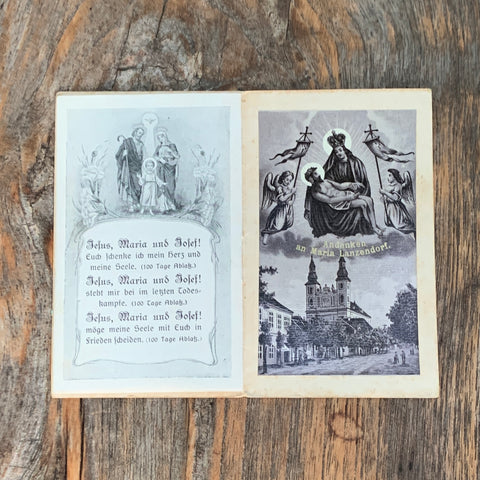 Jesus, Maria und Josef!
Euch schenke ich mein Herz und
meine Seele. (100 Tage Ablaß.)
Jesus, Maria und Josef!
steht mir bei im letzten Todes-
kampfe. (100 Tage Ablaß.)
Jesus, Maria und Josef!
möge meine Seele mit Euch in
Frieden scheiden. (100 Tage Ablaß.)
Andenken
an Maria Lanzendorf.